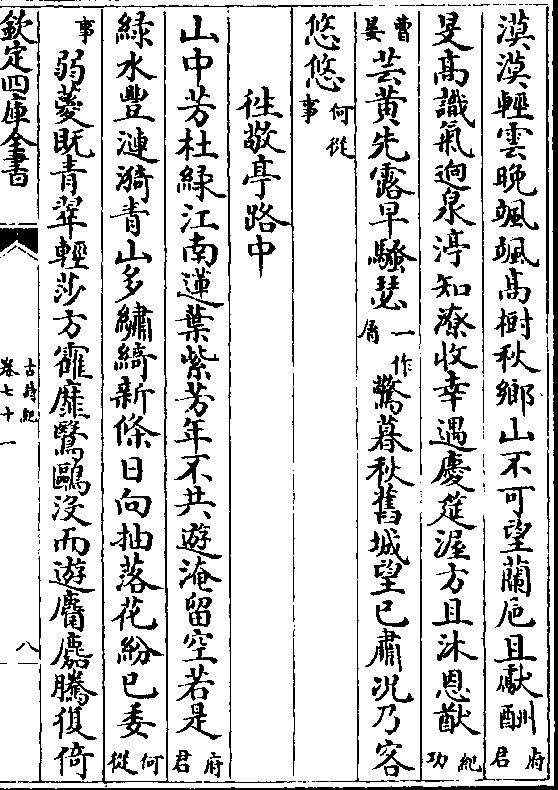 漠漠輕雲晚颯颯高樹秋鄉山不可望蘭巵且獻酬府君
旻高識氣逈泉渟知潦收幸遇慶筵渥方且沐恩猷紀功
曹晏芸黄先露早騷瑟一作屑驚暮秋舊城望已肅况乃客
悠悠何從事
徃敬亭路中
山中芳杜緑江南蓮葉紫芳年不共遊淹留空若是府君
緑水豐漣漪青山多繡綺新條日向抽落花紛已委何從
事弱葼既青翠輕莎方霍靡鷖鷗沒而遊麕麚騰復倚
欽定四庫全書
古詩紀
卷七十一
八